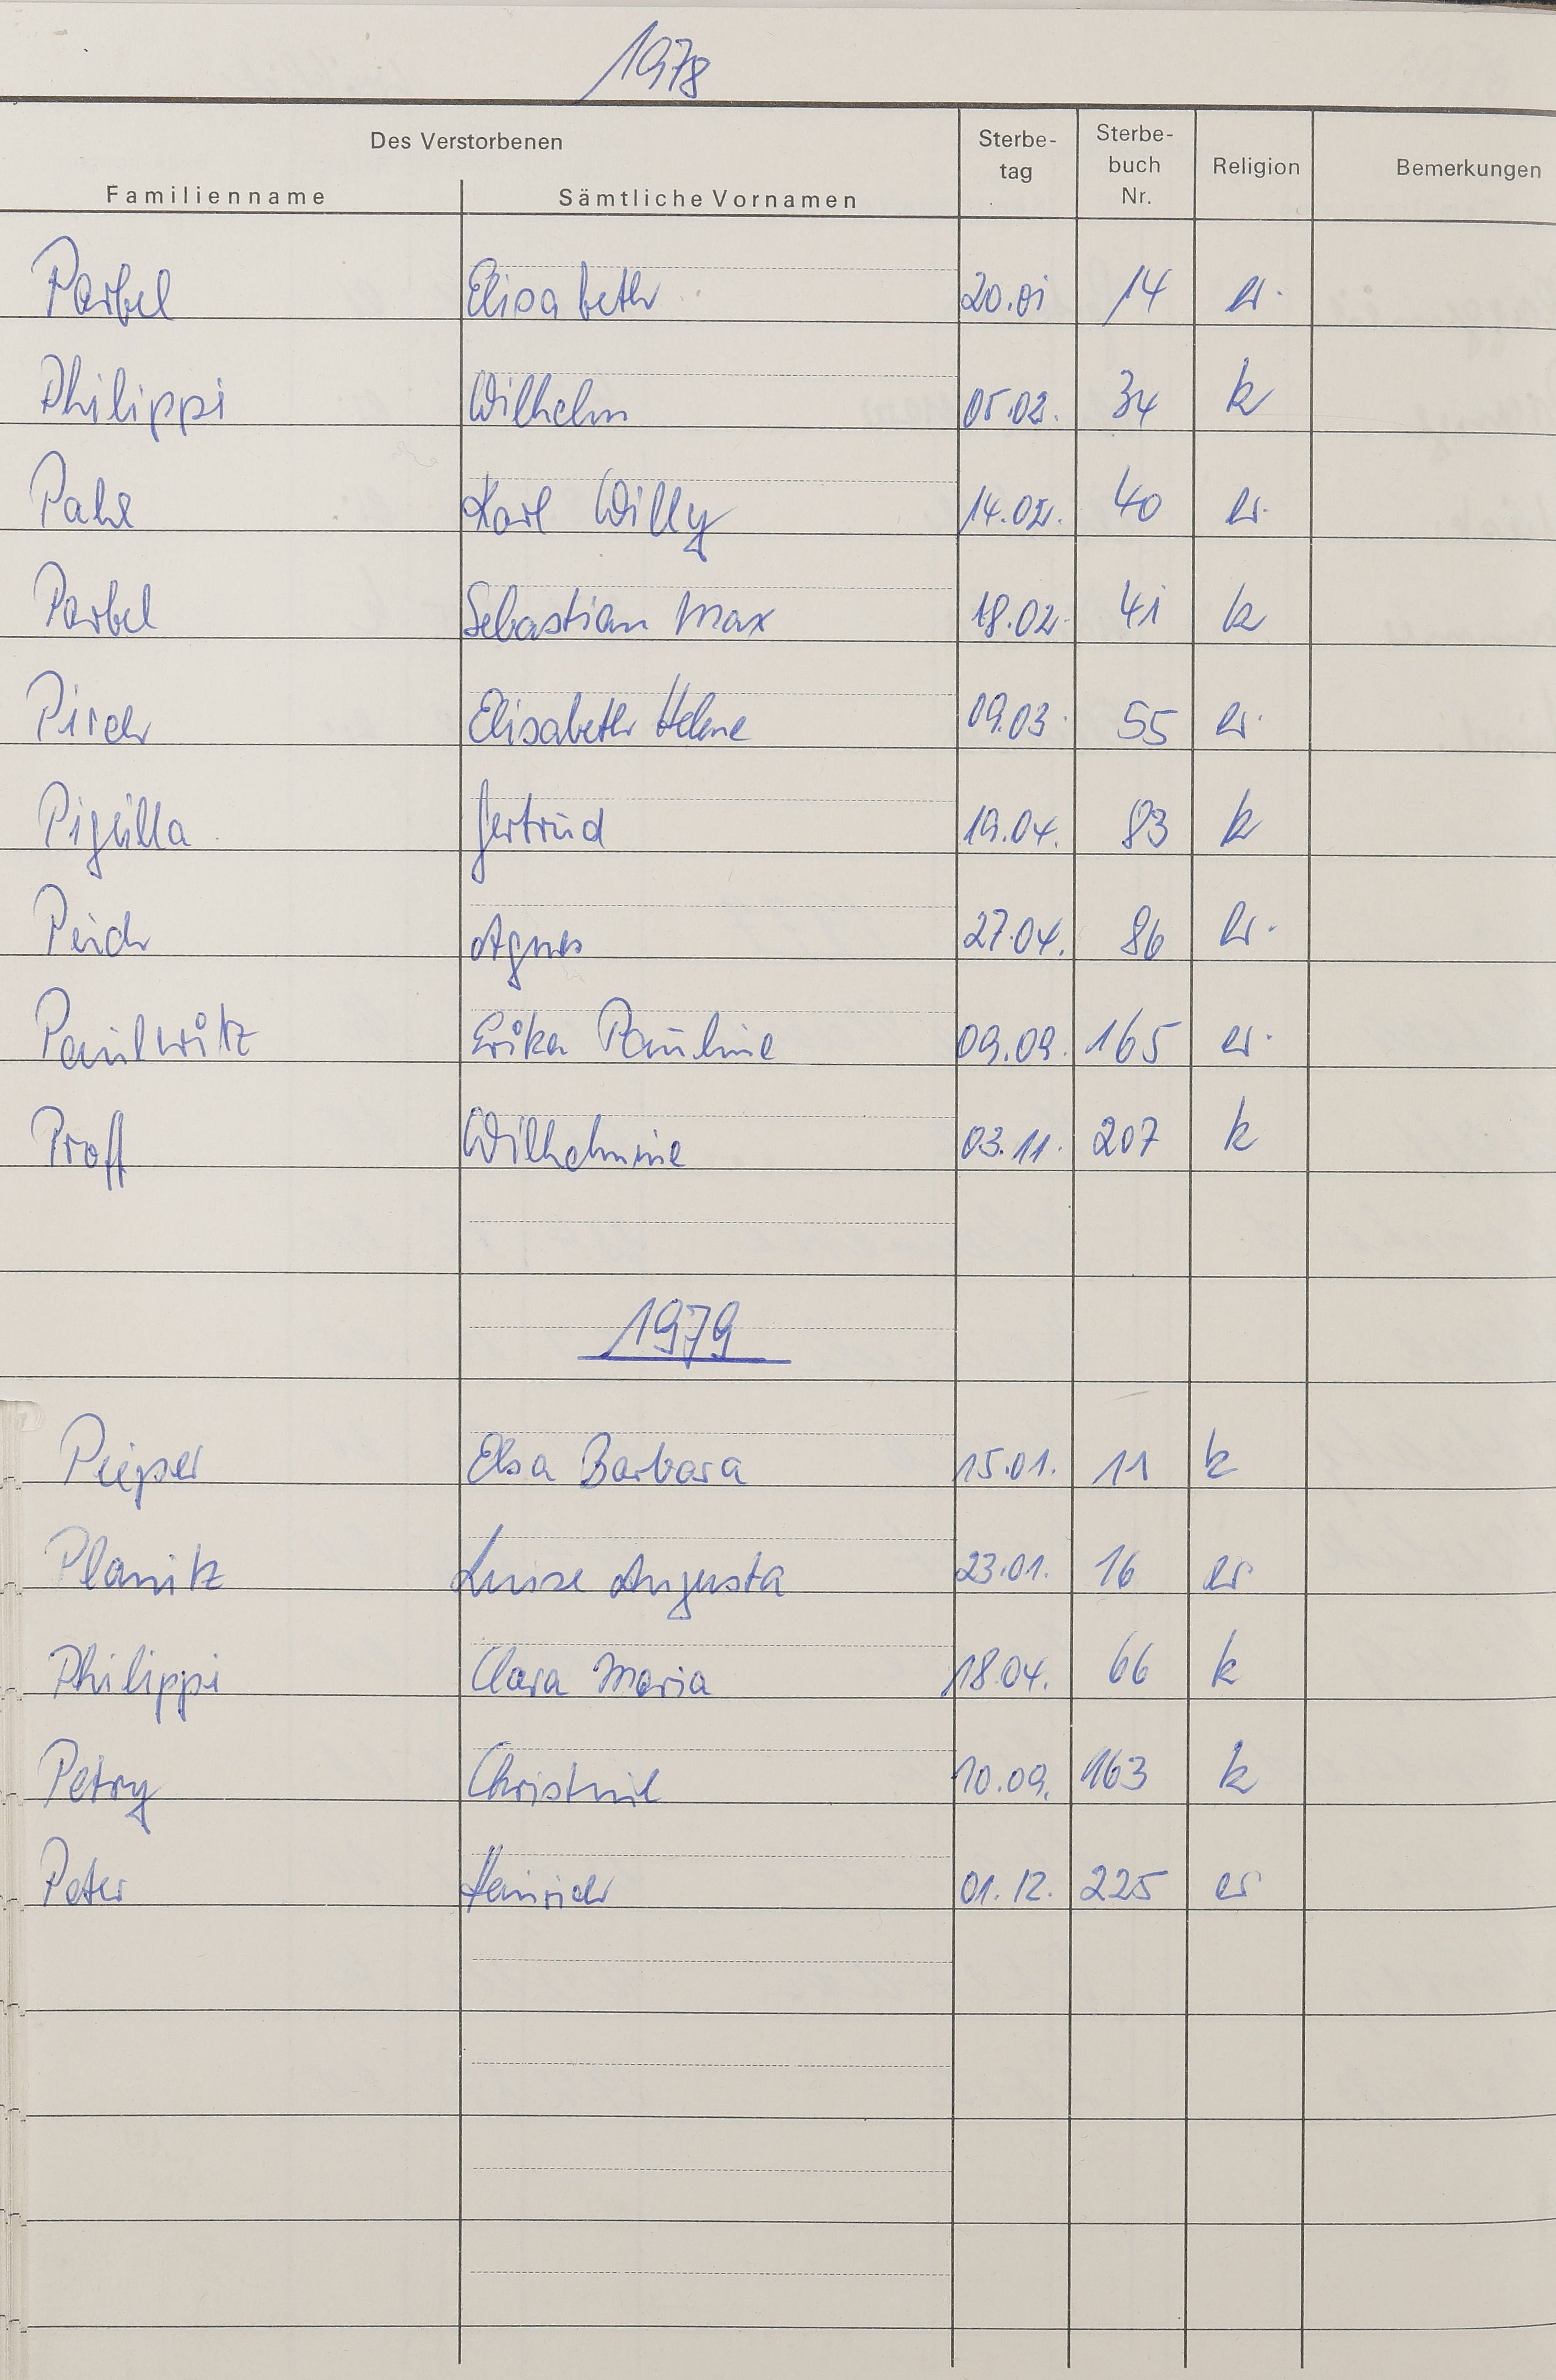 1978
Des Verstorbenen
Familienname Sämtliche Vornamen Sterbe-tag Sterbe-buch Nr. Religion Bemerkungen
Parbel Elisabeth 20.01 14 ev.
Philippi Wilhelm 05.02. 34 k
Pahl Karl Willy 14.02. 40 ev.
Parbel Sebastian Max 18.02. 41 k
Pirch Elisabeth Helene 09.03. 55 ev.
Pigulla Gertrud 19.04. 83 k
Agnes 27.04. 86 ev.
Paulwitz Erika Pauline 09.09. 165 ev.
Proff Wilhelmine 03.11. 207 k
1979
Pieper Elsa Barbara 15.01. 11 k
Planitz Luise Augusta 23.01. 16 ev
Philippi Clara Maria 18.04. 66 k
Petry Christine 10.09. 163 k
Peter Heinrich 01.12. 225 ev